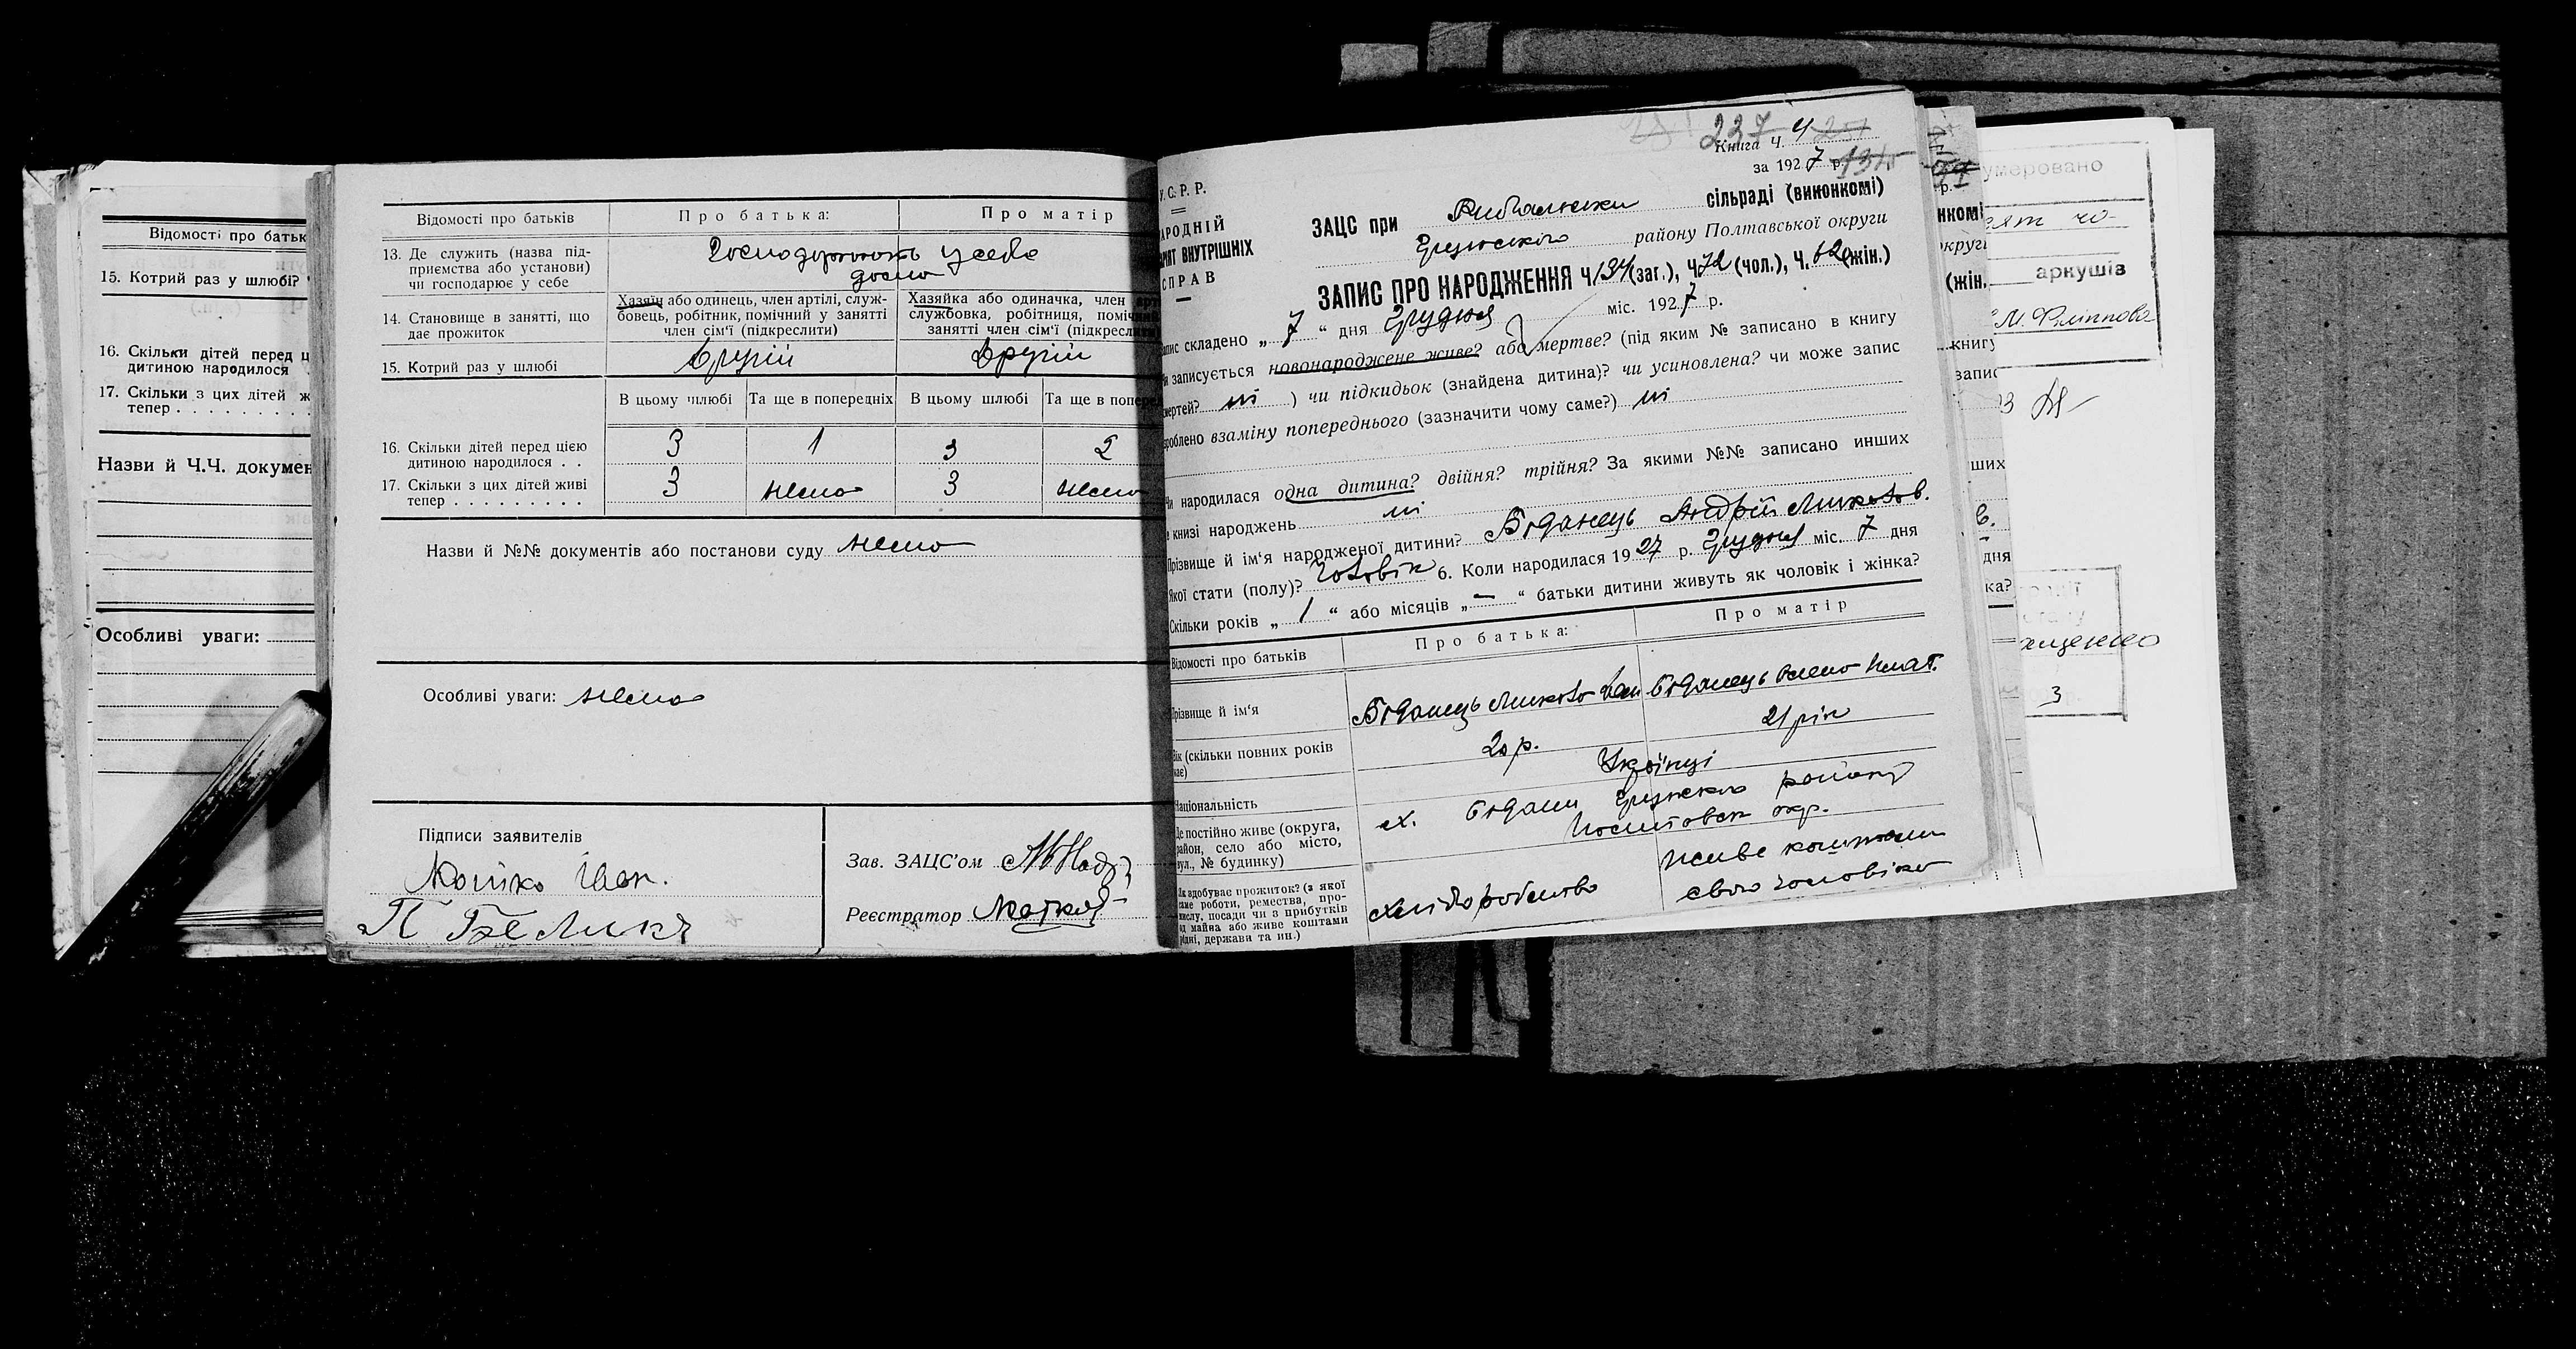 Відомості про батьк
15. Котрий раз у шлюбі?
16. Скільки дітей перед ц
дитиною народилося
17. Скільки з цих дітей ж
тепер . . . . . . . . .
Назви й Ч.Ч. докумен
Особливі уваги:
Відомості про батьків
Про батька:
Про матір
13. Де служить (назва під-
приємства або установи)
чи господарює у себе
Господорюють у себе
дома
14. Становище в занятті, що
дає прожиток
Хазяїн або одинець, член артілі, служ-
бовець, робітник, помічний у занятті
член сім'ї (підкреслити)
Хазяйка або одиначка, член арт
службовка, робітниця, поміч
занятті член сім'ї (підкресли
15. Котрий раз у шлюбі
другий
другий
В цьому шлюбі
Та ще в попередніх
В цьому шлюбі
Та ще в попере
16. Скільки дітей перед цією
дитиною народилося . .
3 1 3 2
17. Скільки з цих дітей живі
тепер . . . . . . . . .
3 нема 3 нема
Назви й №№ документів або постанови суду нема
Особливі уваги: нема
Підписи заявителів
Зав. ЗАЦС'ом
Реєстратор
227
Книга Ч. 4
за 1927 р.
У.С.Р.Р.
АРОДНІЙ
РІЯТ ВНУТРІШНІХ
СПРАВ
ЗАЦС при сільраді (виконкомі)
району Полтавської округи
ЗАПИС ПРО НАРОДЖЕННЯ Ч 134 (заг.), Ч 72 (чол.), Ч. 62 (жін.)
апис складено „ 7 “ дня Грудня міс. 1927 р.
и записується новонароджене живе? або мертве? (під яким № записано в книгу
мертей? ні ) чи підкидьок (знайдена дитина)? чи усиновлена? чи може запис
роблено взаміну попереднього (зазначити чому саме?) ні
Чи народилася одна дитина? двійня? трійня? За якими №№ записано инших
в книзі народжень ні
Прізвище й ім'я народженої дитини? Біданець Андрій Миколов.
Якої стати (полу)? Чоловік 6. Коли народилася 1927 р. Грудня міс. 7 дня
Скільки років „ 1 “ або місяців „ — “ батьки дитини живуть як чоловік і жінка?
Відомості про батьків
Про батька:
Про матір
Прізвище й ім'я
Біданець Микола
Біданець
Вік (скільки повних років
має)
20 р.
21 рік
Національність
Українці
Де постійно живе (округа,
район, село або місто,
вул., № будинку)
х. Бідани району
окр.
Як здобуває прожиток? (з якої
саме роботи, ремества, про-
мислу, посади чи з прибутків
від майна або живе коштами
рідні, держави та ин.)
хліборобство
живе коштами
свого чоловіка
нкомі
округи
(жін.
книгу
запис
ших
в.
дня
ка?
умеровано
аркушів
3